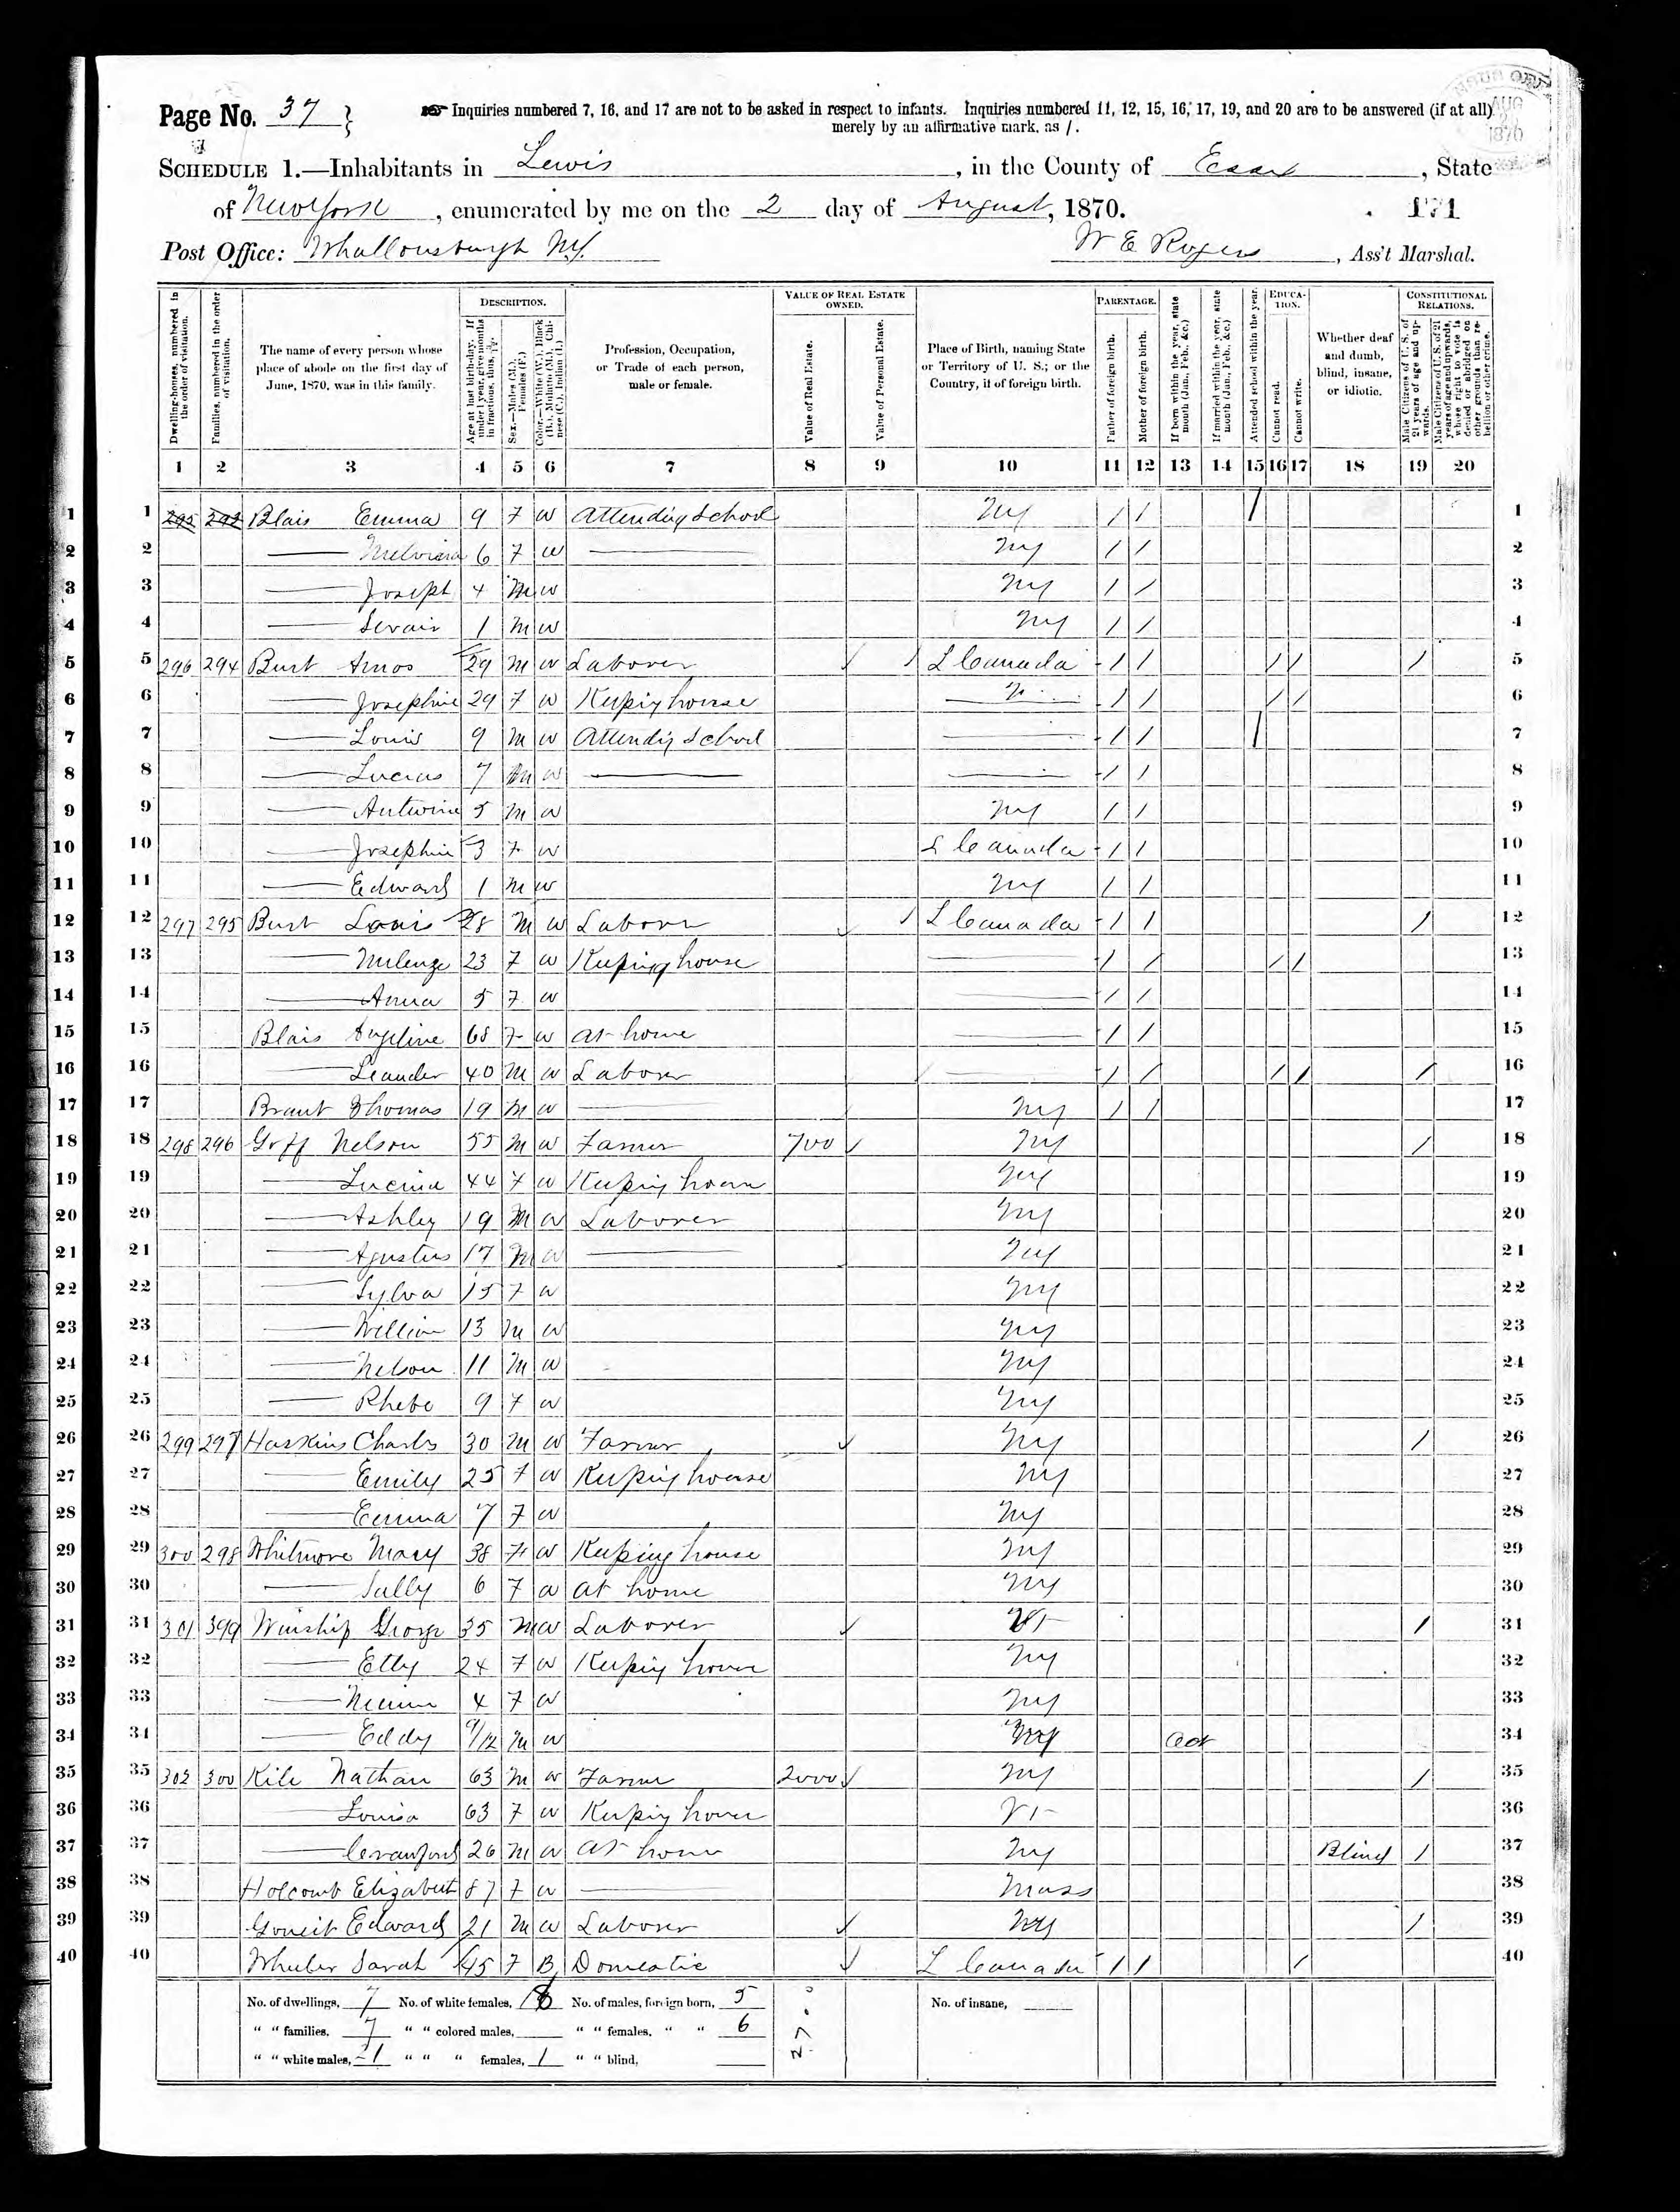 Page No. 37
Inquiries numbered 7, 16, and 17 are not to be asked in respect to infants. Inquiries numbered 11, 12, 15, 16, 17, 19, and 20 are to be answered (if at all)
merely by an affirmative mark, as /.
AUG 1870
SCHEDULE 1.—Inhabitants in Lewis, in the County of Essex, State
of New York, enumerated by me on the 2 day of August, 1870.
171
Post Office: Whallonsburgh N.Y. W E Rogers, Ass't Marshal.
Dwelling-houses, numbered in the order of visitation.
Families, numbered in the order of visitation.
The name of every person whose place of abode on the first day of June, 1870, was in this family.
DESCRIPTION.
Age at last birth-day. If under 1 year, give months in fractions, thus, 3/12.
Sex.—Males (M.), Females (F.)
Color.—White (W.), Black (B.), Mulatto (M.), Chinese (C.), Indian (I.)
Profession, Occupation, or Trade of each person, male or female.
VALUE OF REAL ESTATE OWNED.
Value of Real Estate.
Value of Personal Estate.
Place of Birth, naming State or Territory of U. S.; or the Country, if of foreign birth.
PARENTAGE.
Father of foreign birth.
Mother of foreign birth.
If born within the year, state month (Jan., Feb., &c.)
If married within the year, state month (Jan., Feb., &c.)
Attended school within the year.
EDUCATION.
Cannot read.
Cannot write.
Whether deaf and dumb, blind, insane, or idiotic.
CONSTITUTIONAL RELATIONS.
Male Citizens of U. S. of 21 years of age and upwards.
Male Citizens of U. S. of 21 years of age and upwards, whose right to vote is denied or abridged on other grounds than rebellion or other crime.
1 2 3 4 5 6 7 8 9 10 11 12 13 14 15 16 17 18 19 20
1 1 295 293 Blais Emma 9 F W Attending School NY / / / 1
2 2 —— 6 F W —— NY / / 2
3 3 —— Joseph 4 M W NY / / 3
4 4 —— 1 M W NY / / 4
5 5 296 294 Burt Amos 29 M W Laborer L Canada / / / / / 5
6 6 —— Josephine 29 F W Keeping house —— / / / / 6
7 7 —— Louis 9 M W Attending School —— / / / 7
8 8 —— Lucius 7 M W —— —— / / 8
9 9 —— Antwine 5 M W NY / / 9
10 10 —— Josephine 3 F W L Canada / / 10
11 11 —— Edward 1 M W NY / / 11
12 12 297 295 Burt Louis 28 M W Laborer L Canada / / / 12
13 13 —— 23 F W Keeping house —— / / / / 13
14 14 —— Anna 5 F W —— / / 14
15 15 Blais Angeline 68 F W at home —— / / 15
16 16 —— Leander 40 M W Laborer —— / / / / / 16
17 17 Brant Thomas 19 M W —— NY / / 17
18 18 298 296 Goff Nelson 55 M W Farmer 700 NY / 18
19 19 —— Lucina 44 F W Keeping house NY 19
20 20 —— Ashley 19 M W Laborer NY 20
21 21 —— Agustus 17 M W —— NY 21
22 22 —— Sylva 15 F W NY 22
23 23 —— William 13 M W NY 23
24 24 —— Nelson 11 M W NY 24
25 25 —— Phebe 9 F W NY 25
26 26 299 297 Haskins Charls 30 M W Farmer NY / 26
27 27 —— Emily 25 F W Keeping house NY 27
28 28 —— Emma 7 F W NY 28
29 29 300 298 Whitmore Mary 38 F W Keeping house NY 29
30 30 —— Sally 6 F W at home NY 30
31 31 301 399 Winship George 35 M W Laborer Vt / 31
32 32 —— Etty 24 F W Keeping house NY 32
33 33 —— 4 F W NY 33
34 34 —— Eddy 9/12 M W NY Oct 34
35 35 302 300 Kile Nathan 63 M W Farmer 2000 NY / 35
36 36 —— Louisa 63 F W Keeping house Vt 36
37 37 —— Crawford 26 M W at home NY Blind / 37
38 38 Holcomb Elizabeth 87 F W —— Mass 38
39 39 Edward 21 M W Laborer NY / 39
40 40 Wheeler Sarah 45 F B Domestic L Canada / / / 40
No. of dwellings, 7 No. of white females, 18 No. of males, foreign born, 5 2700 No. of insane,
" " families, 7 " " colored males, " " females, " " 6
" " white males, 21 " " " females, 1 " " blind,